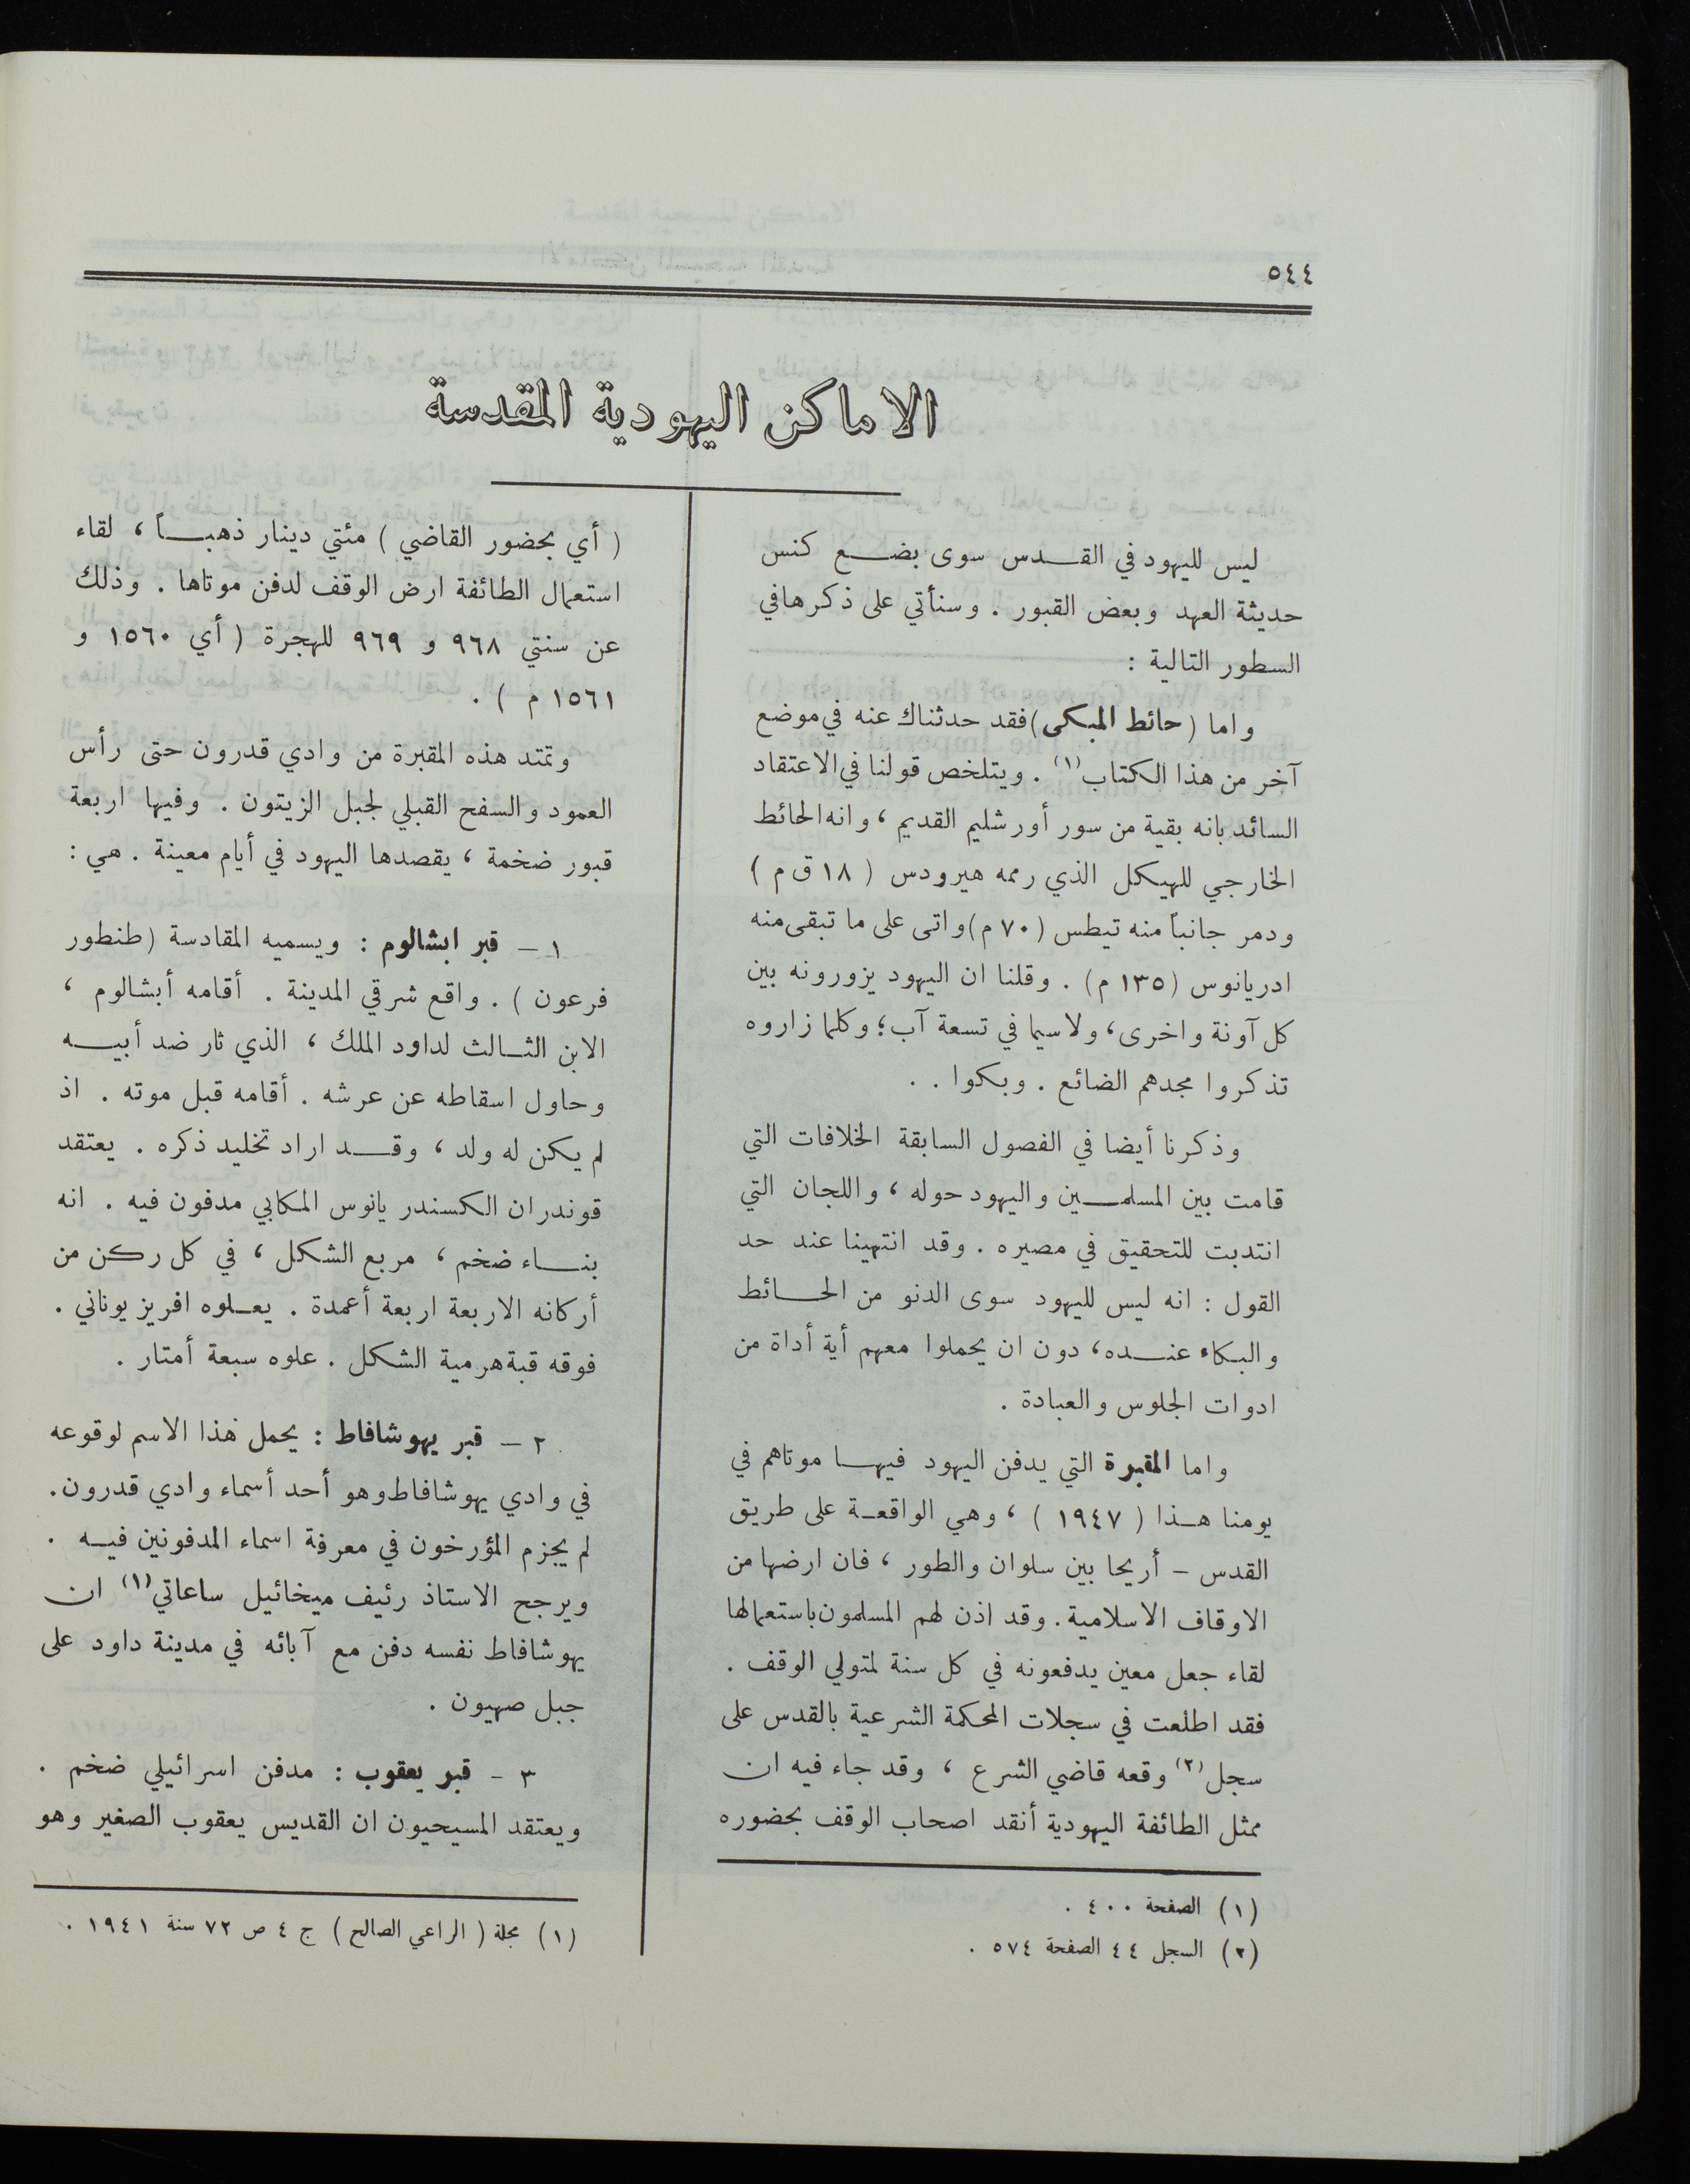 ٥٤٤
الاماكن اليهودية المقدسة
ليس لليهود في القدس سوى بضع كنس
حديثة العهد وبعض القبور . وسنأتي على ذكرها في
السطور التالية :
واما ( حائط المبكى ) فقد حدثناك عنه في موضع
آخر من هذا الكتاب (١) . ويتلخص قولنا في الاعتقاد
السائد بانه بقية من سور أورشليم القديم ، وانه الحائط
الخارجي للهيكل الذي رممه هيرودس ( ١٨ ق م )
ودمر جانباً منه تيطس ( ٧٠ م ) واتى على ما تبقى منه
ادريانوس ( ١٣٥ م ) . وقلنا ان اليهود يزورونه بين
كل آونة واخرى ، ولاسيما في تسعة آب ؛ وكلما زاروه
تذكروا مجدهم الضائع . وبكوا . .
وذكرنا أيضا في الفصول السابقة الخلافات التي
قامت بين المسلمين واليهود حوله ، واللجان التي
انتدبت للتحقيق في مصيره . وقد انتهينا عند حد
القول : انه ليس لليهود سوى الدنو من الحائط
والبكاء عنده ، دون ان يحملوا معهم أية أداة من
ادوات الجلوس والعبادة .
واما المقبرة التي يدفن اليهود فيها موتاهم في
يومنا هذا ( ١٩٤٧ ) ، وهي الواقعة على طريق
القدس – أريحا بين سلوان والطور ، فان ارضها من
الاوقاف الاسلامية . وقد اذن لهم المسلمون باستعمالها
لقاء جعل معين يدفعونه في كل سنة لمتولي الوقف .
فقد اطلعت في سجلات المحكمة الشرعية بالقدس على
سجل (٢) وقعه قاضي الشرع ، وقد جاء فيه ان
ممثل الطائفة اليهودية أنقد اصحاب الوقف بحضوره
(١) الصفحة ٤٠٠ .
(٢) السجل ٤٤ الصفحة ٥٧٤ .
( أي بحضور القاضي ) مئتي دينار ذهباً ، لقاء
استعمال الطائفة ارض الوقف لدفن موتاها . وذلك
عن سنتي ٩٦٨ و ٩٦٩ للهجرة ( أي ١٥٦٠ و
١٥٦١ م ) .
وتمتد هذه المقبرة من وادي قدرون حتى رأس
العمود والسفح القبلي لجبل الزيتون . وفيها اربعة
قبور ضخمة ، يقصدها اليهود في أيام معينة . هي :
١ – قبر ابشالوم : ويسميه المقادسة ( طنطور
فرعون ) . واقع شرقي المدينة . أقامه أبشالوم ،
الابن الثالث لداود الملك ، الذي ثار ضد أبيه
وحاول اسقاطه عن عرشه . أقامه قبل موته . اذ
لم يكن له ولد ، وقد اراد تخليد ذكره . يعتقد
قوندران الكسندر يانوس المكابي مدفون فيه . انه
بناء ضخم ، مربع الشكل ، في كل ركن من
أركانه الاربعة اربعة أعمدة . يعلوه افريز يوناني .
فوقه قبة هرمية الشكل . علوه سبعة أمتار .
٢ – قبر يهوشافاط : يحمل هذا الاسم لوقوعه
في وادي يهوشافاط وهو أحد أسماء وادي قدرون .
لم يجزم المؤرخون في معرفة اسماء المدفونين فيه .
ويرجح الاستاذ رئيف ميخائيل ساعاتي (١) ان
يهوشافاط نفسه دفن مع آبائه في مدينة داود على
جبل صهيون .
٣ - قبر يعقوب : مدفن اسرائيلي ضخم .
ويعتقد المسيحيون ان القديس يعقوب الصغير وهو
(١) مجلة ( الراعي الصالح ) ج ٤ ص ٧٢ سنة ١٩٤١ .